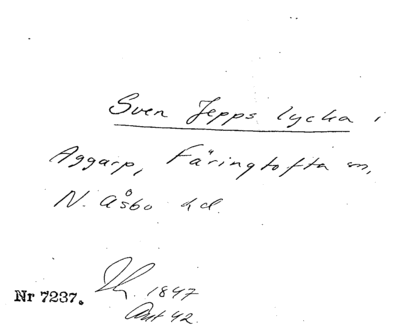 Sven Jepps lycka i
Aggarp, Färingtofta sn,
N. Åsbo hd.
1847
Nr 7237.
42